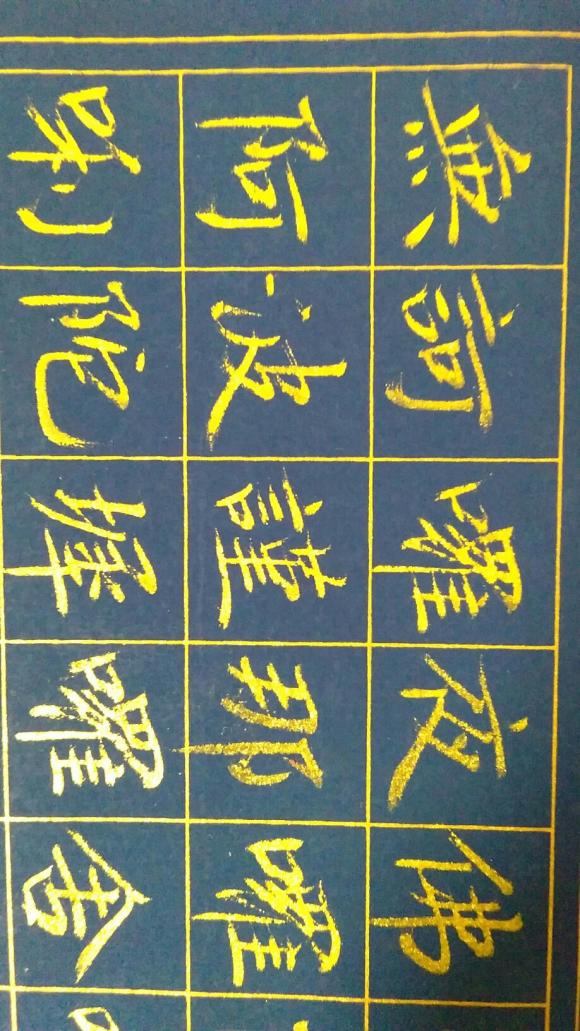 佛囉舍
夜那囉
囉謹墀
訶波陀
無阿唎